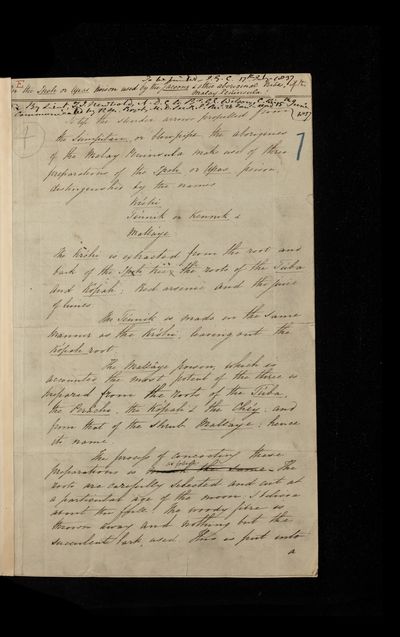 To be printed. J.G.C. 17th July 1837
On the Ipoh or Upas poison used by the Jacoons & other aboriginal Tribes of the
Malay Peninsula.
By Lieut. T.J. Newbold, A.D.C. to
Communicated by
1837
To tip the slender arrows propelled from
the Sumpitan, or blowpipe the aborigines
of the Malay Peninsula make use of three
preparations of the Ipoh or Upas poison,
distinguished by the names
Krohi
Tennik or Kennik &
Mallaye
7
The Krohi is extracted from the root and
bark of the Ipoh tree, the roots of the Tuba
and Kopah; Red arsenic and the juice
of limes.
The Tennik is made in the same
manner as the Krohi; leaving out the
Kopah root.
The Mallaye poison, which is
accounted the most potent of the three is
prepared from the roots of the Tuba,
the Perachi, the Kopah & the Chey; and
from that of the shrub Mallaye; hence
its name.
The process of concocting these
preparations is as follows the same. The
roots are carefully selected and cut at
a particular age of the moon I believe
about the full. The woody fibre is
thrown away and nothing but the
succulent bark used. This is put into
a